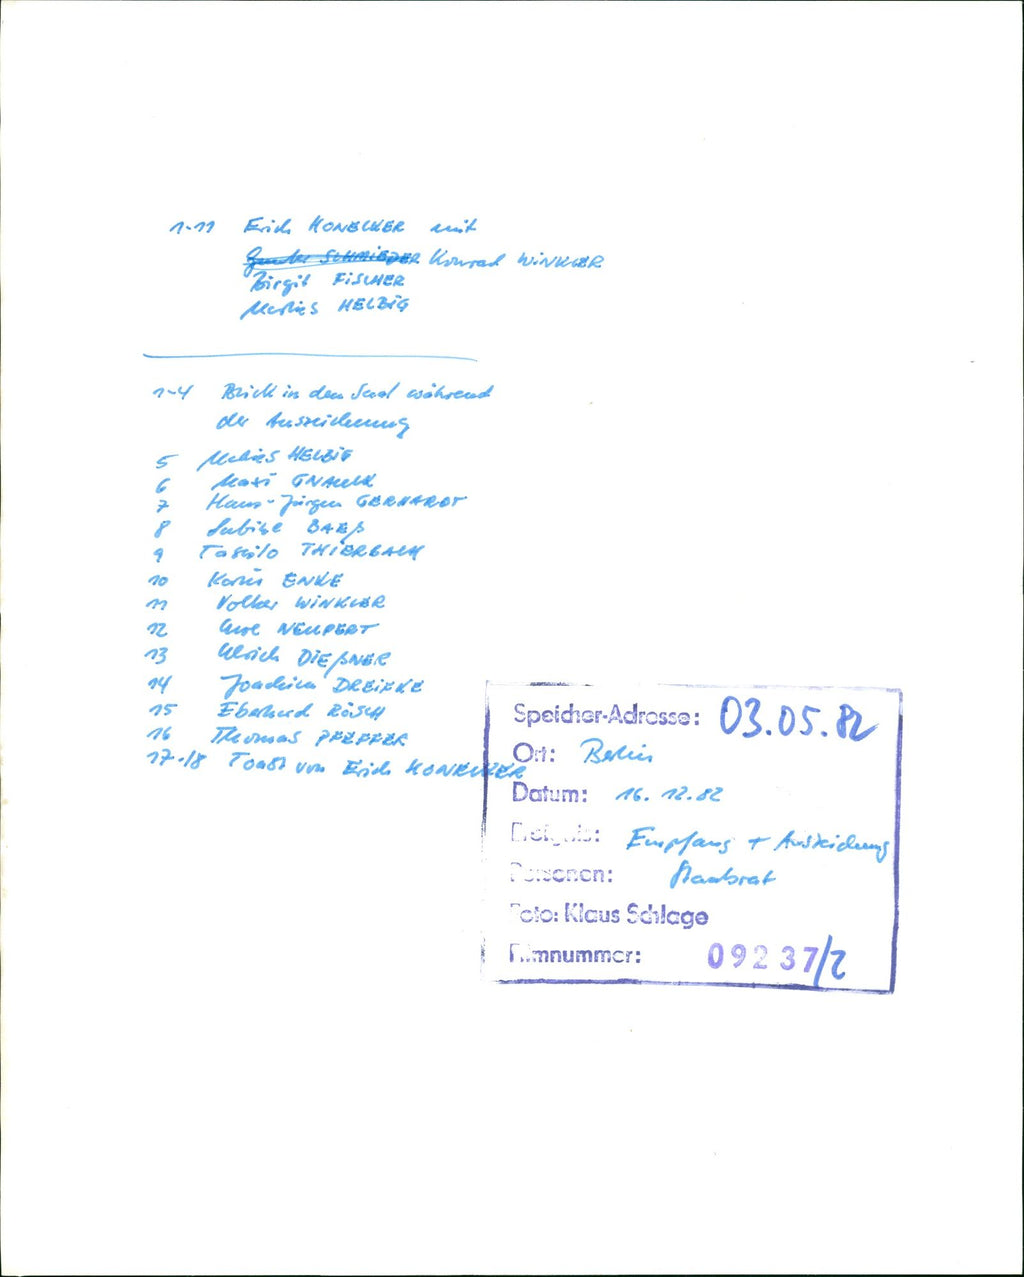 1-11 Erich HONECKER mit
Gunter SCHMIEDER Konrad WINKLER
Birgit FISCHER
Matias HELBIG
1-4 Blick in den Saal während
der Auszeichnung
5 Matias HELBIG
6 Maxi GNAUCK
7 Hans-Jürgen GERHARDT
8 Sabine BAEß
9 Tassilo THIERBACH
10 Karin ENKE
11 Volker WINKLER
12 Uwe NEUPERT
13 Ulrich DIEßNER
14 Joachim DREIFKE
15 Eberhard RÖSCH
16 Thomas PFEFFER
17-18 Toast von Erich HONECKER
Speicher-Adresse: 03.05.82
Ort: Berlin
Datum: 16.12.82
Ereignis: Empfang + Auszeichnung
Personen: Staatsrat
Foto: Klaus Schlage
Filmnummer: 09237/2